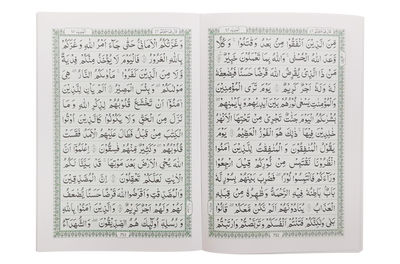 مِنَ الَّذِينَ أَنْفَقُوا مِنْ بَعْدُ وَقٰتَلُوا وَكُلًّا
وَعَدَ اللّٰهُ الْحُسْنٰى وَاللّٰهُ بِمَا تَعْمَلُونَ خَبِيرٌ
مَنْ ذَا الَّذِي يُقْرِضُ اللّٰهَ قَرْضًا حَسَنًا فَيُضٰعِفَهُ
لَهُ وَلَهُ أَجْرٌ كَرِيمٌ يَوْمَ تَرَى الْمُؤْمِنِينَ
وَالْمُؤْمِنٰتِ يَسْعٰى نُورُهُمْ بَيْنَ أَيْدِيهِمْ وَبِأَيْمَانِهِمْ
بُشْرٰىكُمُ الْيَوْمَ جَنّٰتٌ تَجْرِي مِنْ تَحْتِهَا الْأَنْهٰرُ
خٰلِدِينَ فِيهَا ذٰلِكَ هُوَ الْفَوْزُ الْعَظِيمُ يَوْمَ
يَقُولُ الْمُنٰفِقُونَ وَالْمُنٰفِقٰتُ لِلَّذِينَ اٰمَنُوا
انْظُرُونَا نَقْتَبِسْ مِنْ نُورِكُمْ قِيلَ ارْجِعُوا
وَرَاءَكُمْ فَالْتَمِسُوا نُورًا فَضُرِبَ بَيْنَهُمْ بِسُورٍ لَهُ
بَابٌ بَاطِنُهُ فِيهِ الرَّحْمَةُ وَظَاهِرُهُ مِنْ قِبَلِهِ
الْعَذَابُ يُنَادُونَهُمْ أَلَمْ نَكُنْ مَعَكُمْ قَالُوا
بَلٰى وَلٰكِنَّكُمْ فَتَنْتُمْ أَنْفُسَكُمْ وَتَرَبَّصْتُمْ وَارْتَبْتُمْ
وَغَرَّتْكُمُ الْأَمَانِيُّ حَتّٰى جَاءَ أَمْرُ اللّٰهِ وَغَرَّكُمْ
بِاللّٰهِ الْغَرُورُ فَالْيَوْمَ لَا يُؤْخَذُ مِنْكُمْ فِدْيَةٌ
وَلَا مِنَ الَّذِينَ كَفَرُوا مَأْوٰىكُمُ النَّارُ هِيَ
مَوْلٰىكُمْ وَبِئْسَ الْمَصِيرُ أَلَمْ يَأْنِ لِلَّذِينَ
اٰمَنُوا أَنْ تَخْشَعَ قُلُوبُهُمْ لِذِكْرِ اللّٰهِ وَمَا
نَزَلَ مِنَ الْحَقِّ وَلَا يَكُونُوا كَالَّذِينَ أُوتُوا
الْكِتٰبَ مِنْ قَبْلُ فَطَالَ عَلَيْهِمُ الْأَمَدُ فَقَسَتْ
قُلُوبُهُمْ وَكَثِيرٌ مِنْهُمْ فٰسِقُونَ اعْلَمُوا أَنَّ
اللّٰهَ يُحْيِ الْأَرْضَ بَعْدَ مَوْتِهَا قَدْ بَيَّنَّا لَكُمُ
الْاٰيٰتِ لَعَلَّكُمْ تَعْقِلُونَ إِنَّ الْمُصَّدِّقِينَ
وَالْمُصَّدِّقٰتِ وَأَقْرَضُوا اللّٰهَ قَرْضًا حَسَنًا يُضٰعَفُ
لَهُمْ وَلَهُمْ أَجْرٌ كَرِيمٌ وَالَّذِينَ اٰمَنُوا بِاللّٰهِ
وَرُسُلِهِ أُولٰئِكَ هُمُ الصِّدِّيقُونَ وَالشُّهَدَاءُ